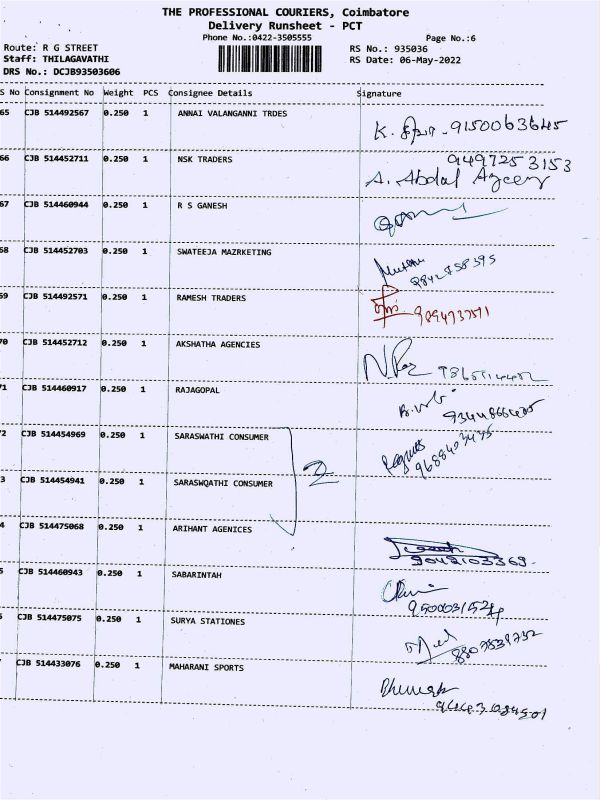 THE PROFESSIONAL COURIERS, Coimbatore
Delivery Runsheet - PCT
Phone No.:0422-3505555
Page No.:6
Route: R G STREET
RS No.: 935036
Staff: THILAGAVATHI
RS Date: 06-May-2022
DRS No.: DCJB93503606
S No Consignment No Weight PCS Consignee Details Signature
65 CJB 514492567 0.250 1 ANNAI VALANGANNI TRDES
K. 9150063645
66 CJB 514452711 0.250 1 NSK TRADERS
9497253153
A. Abdal Azeez
67 CJB 514460944 0.250 1 R S GANESH
68 CJB 514452703 0.250 1 SWATEEJA MAZRKETING
69 CJB 514492571 0.250 1 RAMESH TRADERS
9894737571
70 CJB 514452712 0.250 1 AKSHATHA AGENCIES
71 CJB 514460917 0.250 1 RAJAGOPAL
2 CJB 514454969 0.250 1 SARASWATHI CONSUMER
2
3 CJB 514454941 0.250 1 SARASWQATHI CONSUMER
4 CJB 514475068 0.250 1 ARIHANT AGENICES
9042103369
5 CJB 514460943 0.250 1 SABARINTAH
CJB 514475075 0.250 1 SURYA STATIONES
CJB 514433076 0.250 1 MAHARANI SPORTS